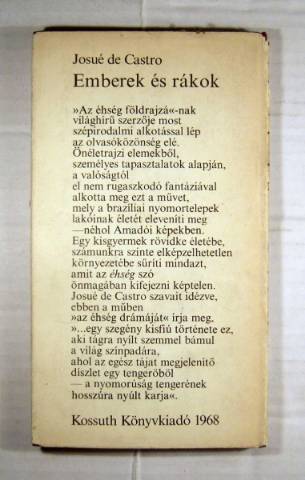 Josué de Castro
Emberek és rákok
»Az éhség földrajzá«-nak
világhírű szerzője most
szépirodalmi alkotással lép
az olvasóközönség elé.
Önéletrajzi elemekből,
személyes tapasztalatok alapján,
a valóságtól
el nem rugaszkodó fantáziával
alkotta meg ezt a művet,
mely a brazíliai nyomortelepek
lakóinak életét eleveníti meg
—néhol Amadói képekben.
Egy kisgyermek rövidke életébe,
számunkra szinte elképzelhetetlen
környezetébe sűríti mindazt,
amit az éhség szó
önmagában kifejezni képtelen.
Josué de Castro szavait idézve,
ebben a műben
»az éhség drámáját« írja meg,
»...egy szegény kisfiú története ez,
aki tágra nyílt szemmel bámul
a világ színpadára,
ahol az egész tájat megjelenítő
díszlet egy tengeröből
— a nyomorúság tengerének
hosszúra nyúlt karja«.
Kossuth Könyvkiadó 1968